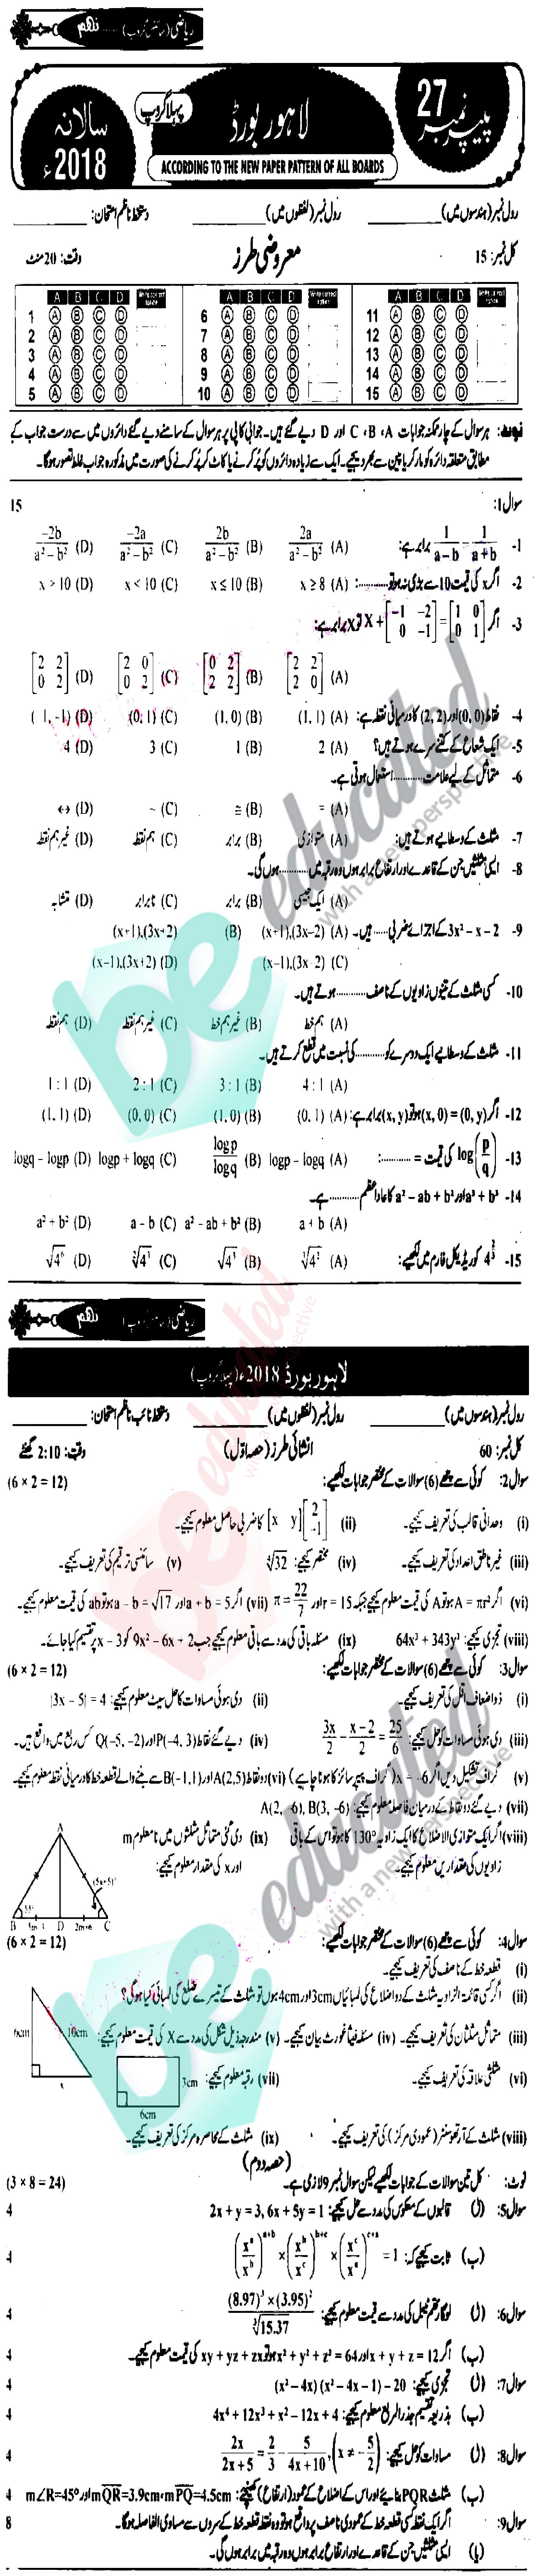 ریاضی (سائنس گروپ) ...... نہم
پیپر نمبر 27
لاہور بورڈ
پہلا گروپ
سالانہ 2018ء
ACCORDING TO THE NEW PAPER PATTERN OF ALL BOARDS
رول نمبر (ہندسوں میں) ________ رول نمبر (لفظوں میں) ________ دستخط ناظم امتحان: ________
کل نمبر: 15 معروضی طرز وقت: 20 منٹ
A B C D Write correct option A B C D Write correct option A B C D Write correct option
1 A B C D 6 A B C D 11 A B C D
2 A B C D 7 A B C D 12 A B C D
3 A B C D 8 A B C D 13 A B C D
4 A B C D 9 A B C D 14 A B C D
5 A B C D 10 A B C D 15 A B C D
نوٹ: ہر سوال کے چار ممکنہ جوابات A، B، C اور D دیے گئے ہیں۔ جوابی کاپی پر ہر سوال کے سامنے دیے گئے دائروں میں سے درست جواب کے
مطابق متعلقہ دائرہ کو مارکر یا پین سے بھر دیجیے۔ ایک سے زیادہ دائروں کو پُر کرنے یا کاٹ کر پُر کرنے کی صورت میں مذکورہ جواب غلط تصور ہوگا۔
سوال 1: 15
1- 1/(a−b) − 1/(a+b) برابر ہے: (A) 2a/(a²−b²) (B) 2b/(a²−b²) (C) −2a/(a²−b²) (D) −2b/(a²−b²)
2- اگر x کی قیمت 10 سے بڑی نہ ہو تو............: (A) x ≥ 8 (B) x ≤ 10 (C) x < 10 (D) x > 10
3- اگر X + [−1 −2; 0 −1] = [1 0; 0 1] تو X برابر ہے:
(A) [2 2; 2 0] (B) [0 2; 2 2] (C) [2 0; 0 2] (D) [2 2; 0 2]
4- نقاط (0, 0) اور (2, 2) کا درمیانی نقطہ ہے: (A) (1, 1) (B) (1, 0) (C) (0, 1) (D) (1, −1)
5- ایک شعاع کے کتنے سرے ہوتے ہیں؟ (A) 2 (B) 1 (C) 3 (D) 4
6- متماثل کے لیے علامت............ استعمال ہوتی ہے۔
(A) = (B) ≅ (C) ~ (D) ↔
7- مثلث کے وسطانیے ہوتے ہیں: (A) متوازی (B) برابر (C) ہم نقطہ (D) غیر ہم نقطہ
8- ایسی مثلثیں جن کے قاعدے اور ارتفاع برابر ہوں وہ رقبہ میں............ ہوں گی۔
(A) ایک جیسی (B) برابر (C) نابرابر (D) متشابہ
9- 3x² − x − 2 کے اجزائے ضربی...... ہیں۔ (A) (x+1),(3x−2) (B) (x+1),(3x+2)
(C) (x−1),(3x−2) (D) (x−1),(3x+2)
10- کسی مثلث کے تینوں زاویوں کے ناصف............ ہوتے ہیں۔
(A) ہم خط (B) غیر ہم خط (C) غیر ہم نقطہ (D) ہم نقطہ
11- مثلث کے وسطانیے ایک دوسرے کو............ کی نسبت میں قطع کرتے ہیں۔
(A) 4 : 1 (B) 3 : 1 (C) 2 : 1 (D) 1 : 1
12- اگر (x, 0) = (0, y) ہو تو (x, y) برابر ہے: (A) (0, 1) (B) (1, 0) (C) (0, 0) (D) (1, 1)
13- log(p/q) کی قیمت = ............: (A) logp − logq (B) logp/logq (C) logp + logq (D) logq − logp
14- a³ + b³ اور a² − ab + b² کا عاد اعظم............ ہے۔
(A) a + b (B) a² − ab + b² (C) a − b (D) a² + b²
15- کو ریڈیکل فارم میں لکھیے:
ریاضی (سائنس گروپ) نہم
لاہور بورڈ 2018ء (پہلا گروپ)
رول نمبر (ہندسوں میں) ________ رول نمبر (لفظوں میں) ________ دستخط نائب ناظم امتحان: ________
کل نمبر: 60 انشائی طرز (حصہ اوّل) وقت: 2:10 گھنٹے
سوال 2: کوئی سے چھے (6) سوالات کے مختصر جوابات لکھیے: (6 × 2 = 12)
(i) وحدانی قالب کی تعریف کیجیے۔ (ii) [x y] [2; −1] کا ضربی حاصل معلوم کیجیے۔
(iii) غیر ناطق اعداد کی تعریف کیجیے۔ (iv) مختصر کیجیے: (v) سائنسی ترقیم کی تعریف کیجیے۔
(vi) اگر A = πr² ہو تو A کی قیمت معلوم کیجیے جبکہ r = 15 اور π = 22/7 (vii) اگر a + b = 5 اور a − b = √17 ہو تو ab کی قیمت معلوم کیجیے۔
(viii) تجزی کیجیے: 64x³ + 343y³ (ix) مسئلہ باقی کی مدد سے باقی معلوم کیجیے جب 9x² − 6x + 2 کو x − 3 پر تقسیم کیا جائے۔
سوال 3: کوئی سے چھے (6) سوالات کے مختصر جوابات لکھیے: (6 × 2 = 12)
(i) ذو اضعاف اقل کی تعریف کیجیے۔ (ii) دی ہوئی مساوات کا حل سیٹ معلوم کیجیے: |3x − 5| = 4
(iii) دی ہوئی مساوات کو حل کیجیے: 3x/2 − (x−2)/2 = 25/6 (iv) دیے گئے نقاط P(−4, 3) اور Q(−5, −2) کس ربع میں واقع ہیں۔
(v) گراف تشکیل دیں اگر x = −6 (گراف پیپر سائز کا ہونا چاہیے) (vi) دو نقاط A(2,5) اور B(−1,1) سے بننے والے قطعہ خط کا درمیانی نقطہ معلوم کیجیے۔
(vii) دیے گئے دو نقاط کے درمیان فاصلہ معلوم کیجیے: A(2, −6), B(3, −6)
(viii) اگر ایک متوازی الاضلاع کا ایک زاویہ 130° کا ہو تو اس کے باقی زاویوں کی مقداریں معلوم کیجیے۔
(ix) دی گئی متماثل مثلثوں میں نامعلوم m اور x کی مقدار معلوم کیجیے:
A
(5x+5)°
55°
B D C
2m+6
سوال 4: کوئی سے چھے (6) سوالات کے مختصر جوابات لکھیے: (6 × 2 = 12)
(i) قطعہ خط کے ناصف کی تعریف کیجیے۔
(ii) اگر کسی قائمۃ الزاویہ مثلث کے دو اضلاع کی لمبائیاں 3cm اور 4cm ہوں تو مثلث کے تیسرے ضلع کی لمبائی کیا ہوگی؟
(iii) متماثل مثلثان کی تعریف کیجیے۔ (iv) مسئلہ فیثاغورث بیان کیجیے۔ (v) مندرجہ ذیل شکل کی مدد سے X کی قیمت معلوم کیجیے:
6cm 10cm x
(vi) مثلثی علاقہ کی تعریف کیجیے۔ (vii) رقبہ معلوم کیجیے:
3cm
6cm
(viii) مثلث کے آرتھو سنٹر (عمودی مرکز) کی تعریف کیجیے۔ (ix) مثلث کے محاصرہ مرکز کی تعریف کیجیے۔
(حصہ دوم)
نوٹ: کل تین سوالات کے جوابات لکھیے لیکن سوال نمبر 9 لازمی ہے۔ (3 × 8 = 24)
سوال 5: (ا) قالبوں کے معکوس کی مدد سے حل کیجیے: 2x + y = 3, 6x + 5y = 1 4
(ب) ثابت کیجیے کہ: (xᵃ/xᵇ)ᵃ⁺ᵇ × (xᵇ/xᶜ)ᵇ⁺ᶜ × (xᶜ/xᵃ)ᶜ⁺ᵃ = 1 4
سوال 6: (ا) لوگارتھم ٹیبل کی مدد سے قیمت معلوم کیجیے: (8.97)³ × (3.95)² / ∛15.37 4
(ب) اگر x + y + z = 12 اور x² + y² + z² = 64 ہو تو xy + yz + zx کی قیمت معلوم کیجیے۔ 4
سوال 7: (ا) تجزی کیجیے: (x² − 4x) (x² − 4x − 1) − 20 4
(ب) بذریعہ تقسیم جذر المربع معلوم کیجیے: 4x⁴ + 12x³ + x² − 12x + 4 4
سوال 8: (ا) مساوات کو حل کیجیے: 2x/(2x+5) = 2/3 − 5/(4x+10), (x ≠ −5/2) 4
(ب) مثلث PQR بنائیے اور اس کے اضلاع کے عمود (ارتفاع) کھینچیے: mPQ=4.5cm، mQR=3.9cm اور m∠R=45° 4
سوال 9: اگر ایک نقطہ کسی قطعہ خط کے عمودی ناصف پر واقع ہو تو وہ نقطہ قطعہ خط کے سروں سے مساوی الفاصلہ ہوگا۔ 8
(یا) ایسی مثلثیں جن کے قاعدے اور ارتفاع برابر ہوں وہ رقبہ میں برابر ہوں گی۔
be educated
with a new perspective